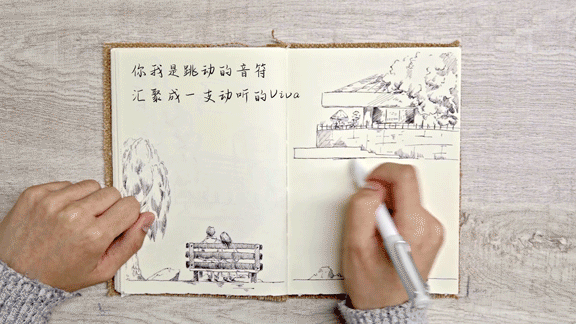 你我是跳动的音符
汇聚成一支动听的Viva